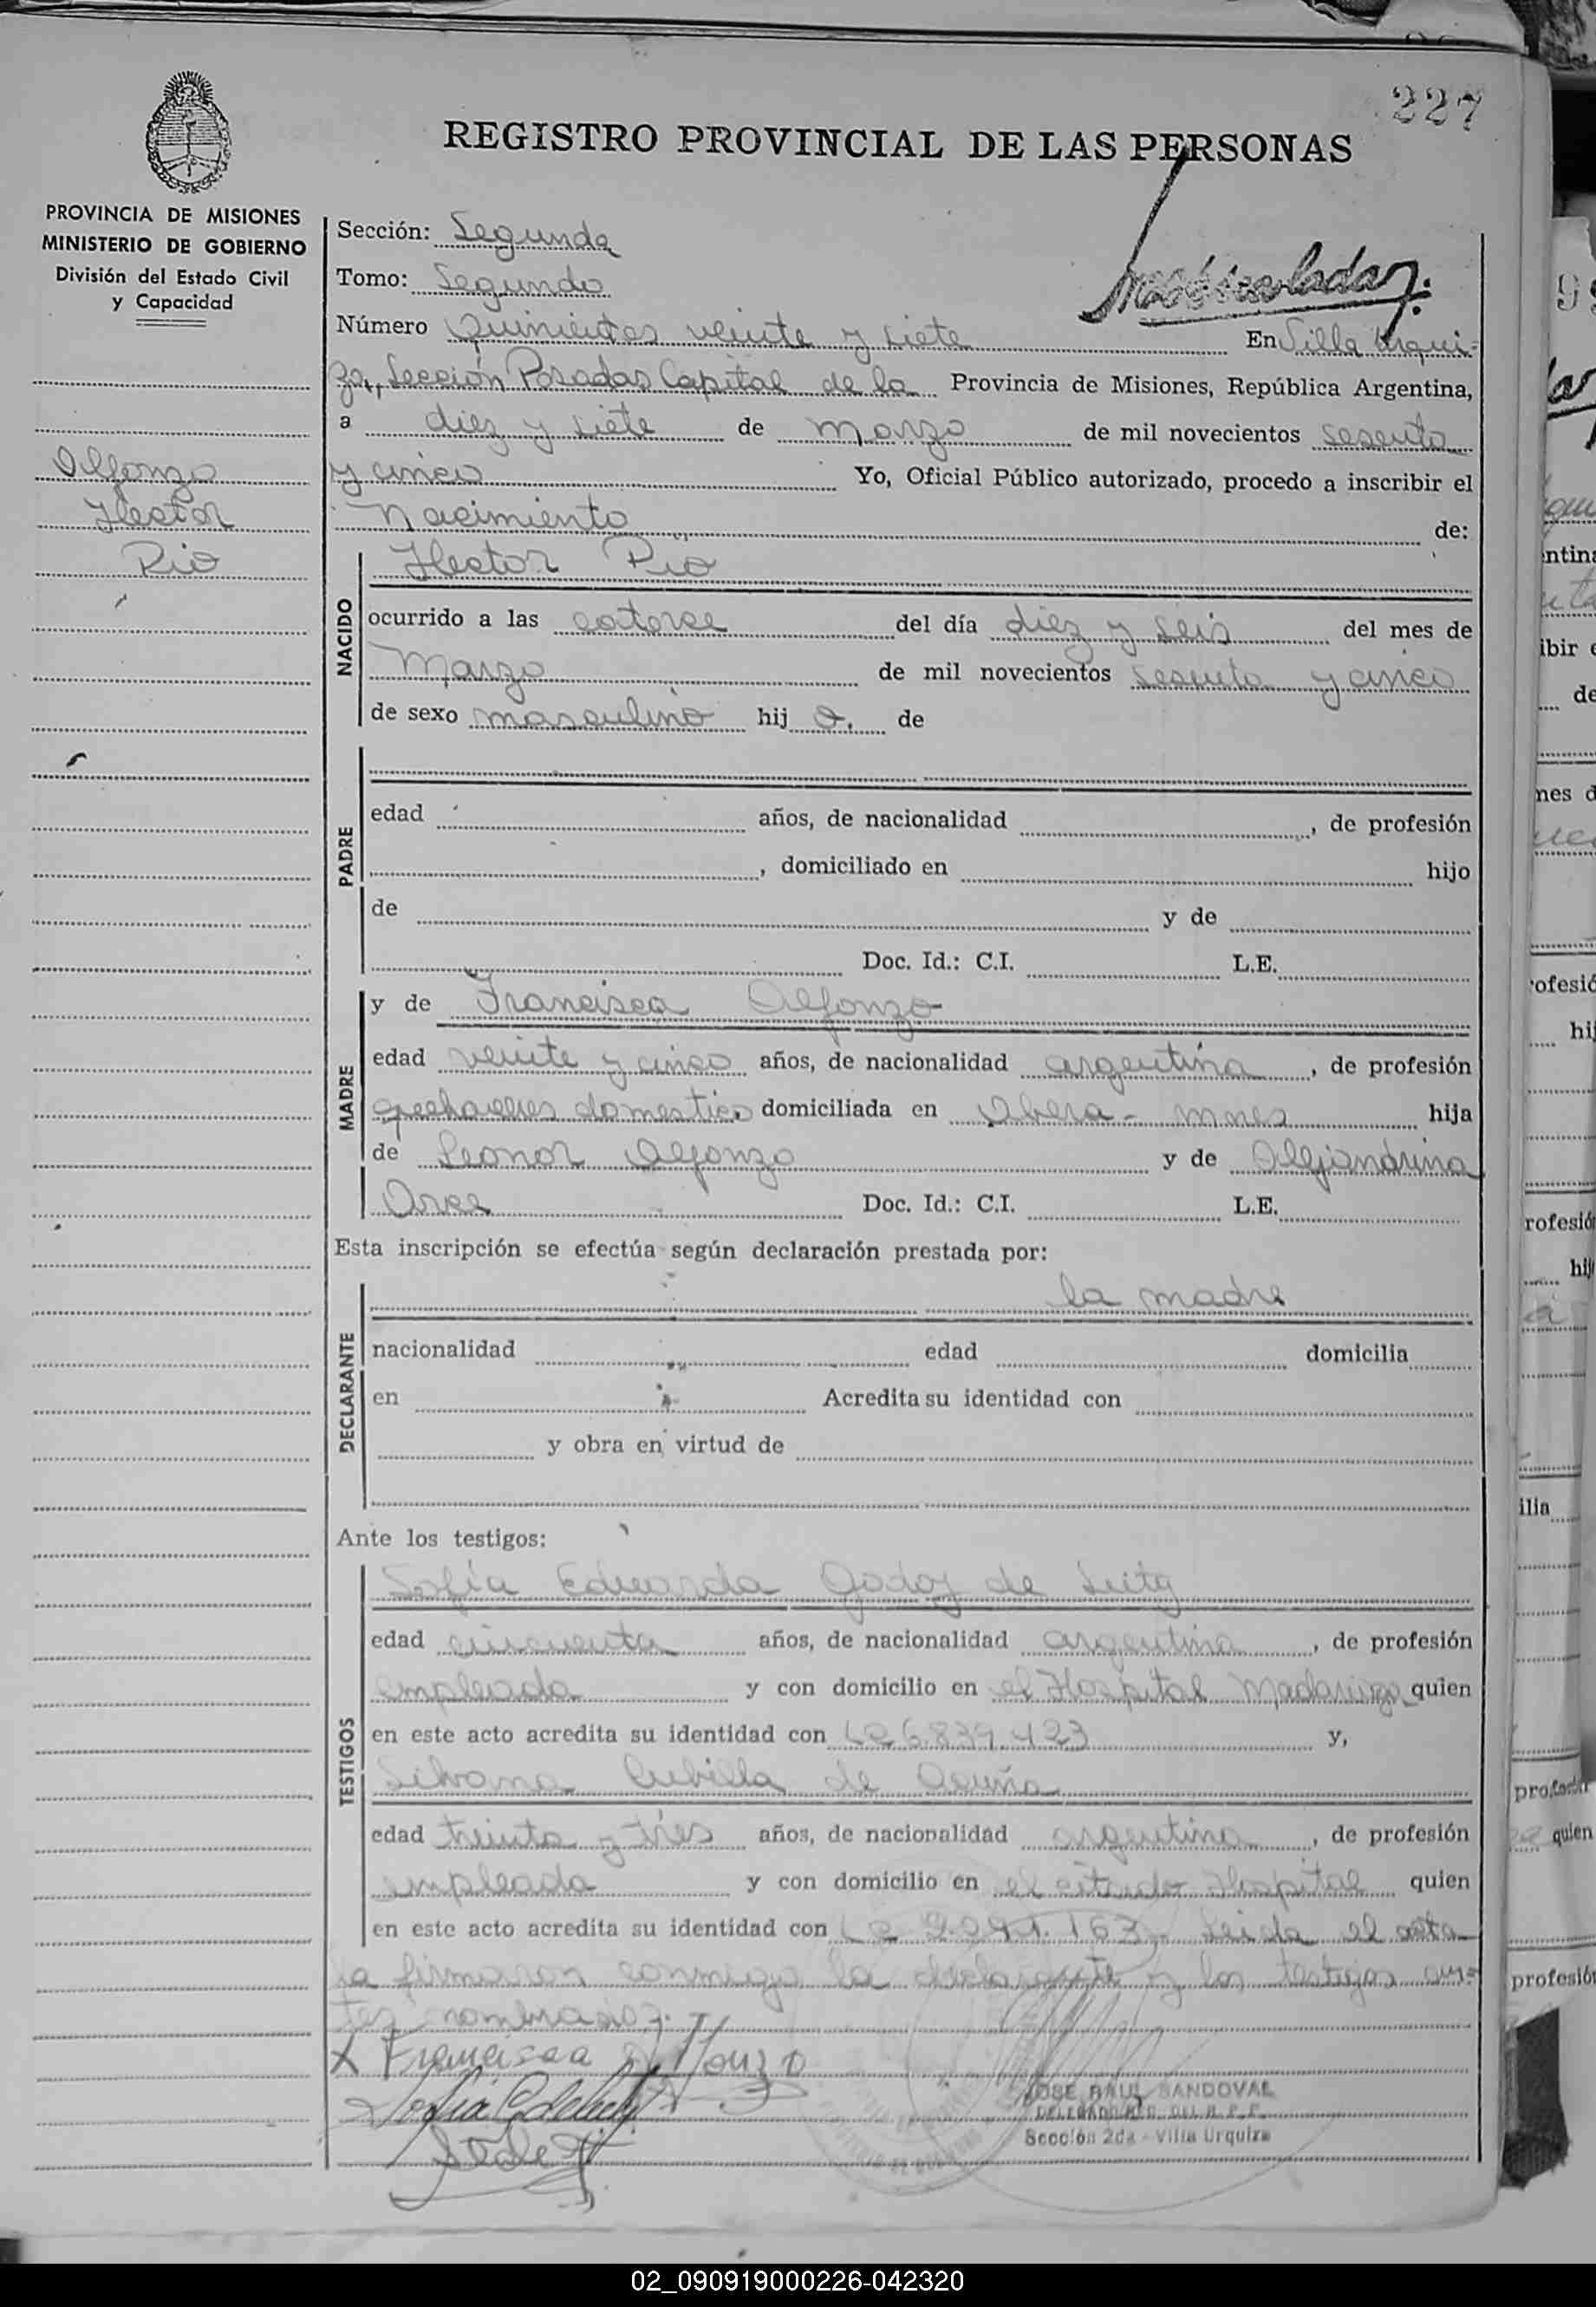 227
REGISTRO PROVINCIAL DE LAS PERSONAS
PROVINCIA DE MISIONES
MINISTERIO DE GOBIERNO
División del Estado Civil
y Capacidad
Alfonzo
Hector
Pio
Sección: Segunda
Tomo: Segundo
Número Quinientos veinte y siete En Villa Urqui-
za, Sección Posadas Capital de la Provincia de Misiones, República Argentina,
a diez y siete de Marzo de mil novecientos sesenta
y cinco Yo, Oficial Público autorizado, procedo a inscribir el
Nacimiento de:
NACIDO
Hector Pio
ocurrido a las catorce del día diez y seis del mes de
Marzo de mil novecientos sesenta y cinco
de sexo masculino hij o. de
PADRE
edad años, de nacionalidad , de profesión
, domiciliado en hijo
de y de
Doc. Id.: C.I. L.E.
MADRE
y de Francisca Alfonzo
edad veinte y cinco años, de nacionalidad argentina , de profesión
domestico domiciliada en Obera - mnes hija
de Leonor Alfonzo y de Alejandrina
Arce Doc. Id.: C.I. L.E.
Esta inscripción se efectúa según declaración prestada por:
DECLARANTE
la madre
nacionalidad edad domicilia
en Acredita su identidad con
y obra en virtud de
Ante los testigos:
TESTIGOS
Sofia Eduarda Godoy de
edad cincuenta años, de nacionalidad argentina , de profesión
empleada y con domicilio en el Hospital Madariaga quien
en este acto acredita su identidad con LC 6.839.423 y,
Silvana Cubilla de Acuña
edad treinta y tres años, de nacionalidad argentina , de profesión
empleada y con domicilio en el citado Hospital quien
en este acto acredita su identidad con Leida el acta
la firmaron conmigo la declarante y los testigos an-
tes nombrados.
X Francisca Alfonzo
JOSE RAUL SANDOVAL
DELEGADO REG. DEL R. P. P.
Sección 2da - Villa Urquiza
02_090919000226-042320